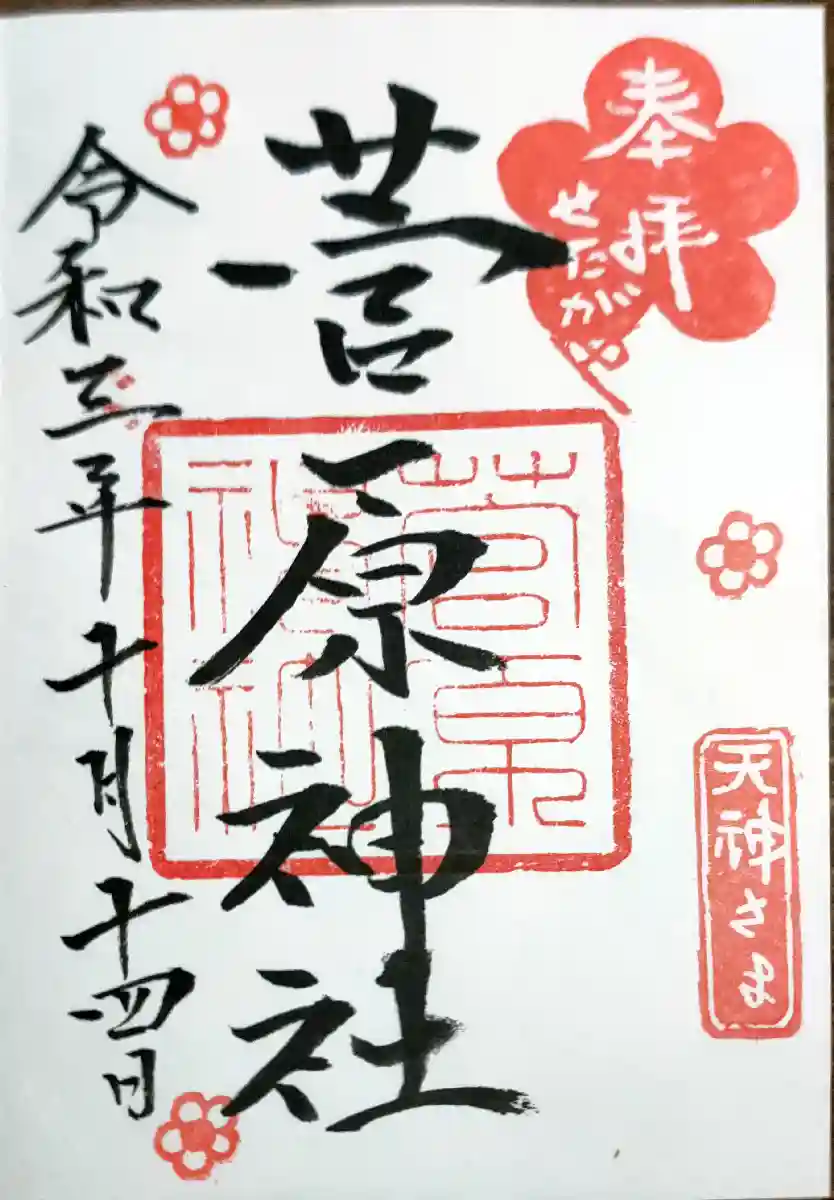 奉拝
せたがや
天神さま
菅原神社
菅原神社
令和三年十月十四日